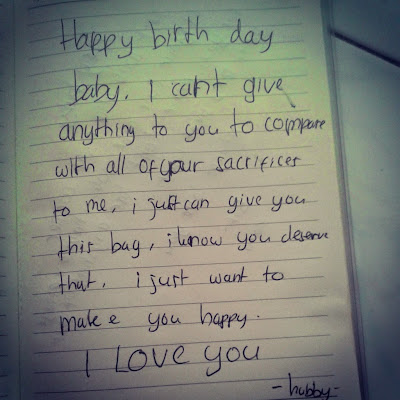 Happy birth day
baby. I can't give
anything to you to compare
with all of your sacrifices
to me, i just can give you
this bag, i know you deserve
that. i just want to
make you happy.
I LOVE YOU
-hubby-